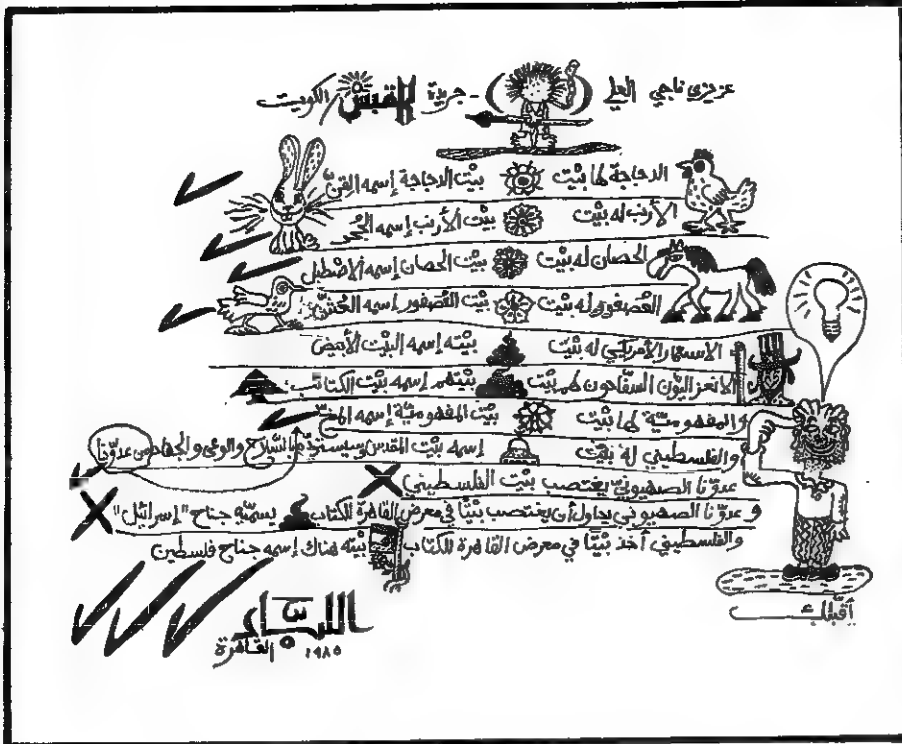 عزيزي ناجي العلي ( ) - جريدة القبس / الكويت
الدجاجة لها بيْت بيْت الدجاجة إسمه القنّ
الأرنب له بيْت بيْت الأرنب إسمه الجُحر
الحصان له بيْت بيْت الحصان إسمه الإصْطبل
العُصفور له بيْت بيْت العُصفور إسمه العُشّ
الاستعمار الأمريكي له بيْت بيْته إسمه البيْت الأبيض
الانعزاليّون السفّاحون لهم بيْت بيْتهم إسمه بيْت الكتائب
والمفهوميّة لها بيْت بيْت المفهوميّة إسمه المخّ
والفلسطيني له بيْت إسمه بيْت المقدس وسيستردّه بالسّلاح والوعي والجهاد من عدوّنا
عدوّنا الصهيونيّ يغتصب بيْت الفلسطيني
وعدوّنا الصهيوني يحاول أن يغتصب بيْتًا في معرض القاهرة للكتاب يسمّيه جناح "إسرائيل"
والفلسطيني أخذ بيْتًا في معرض القاهرة للكتاب بيْته هناك إسمه جناح فلسطين
أقبّلك
اللبّاد
القاهرة ١٩٨٥